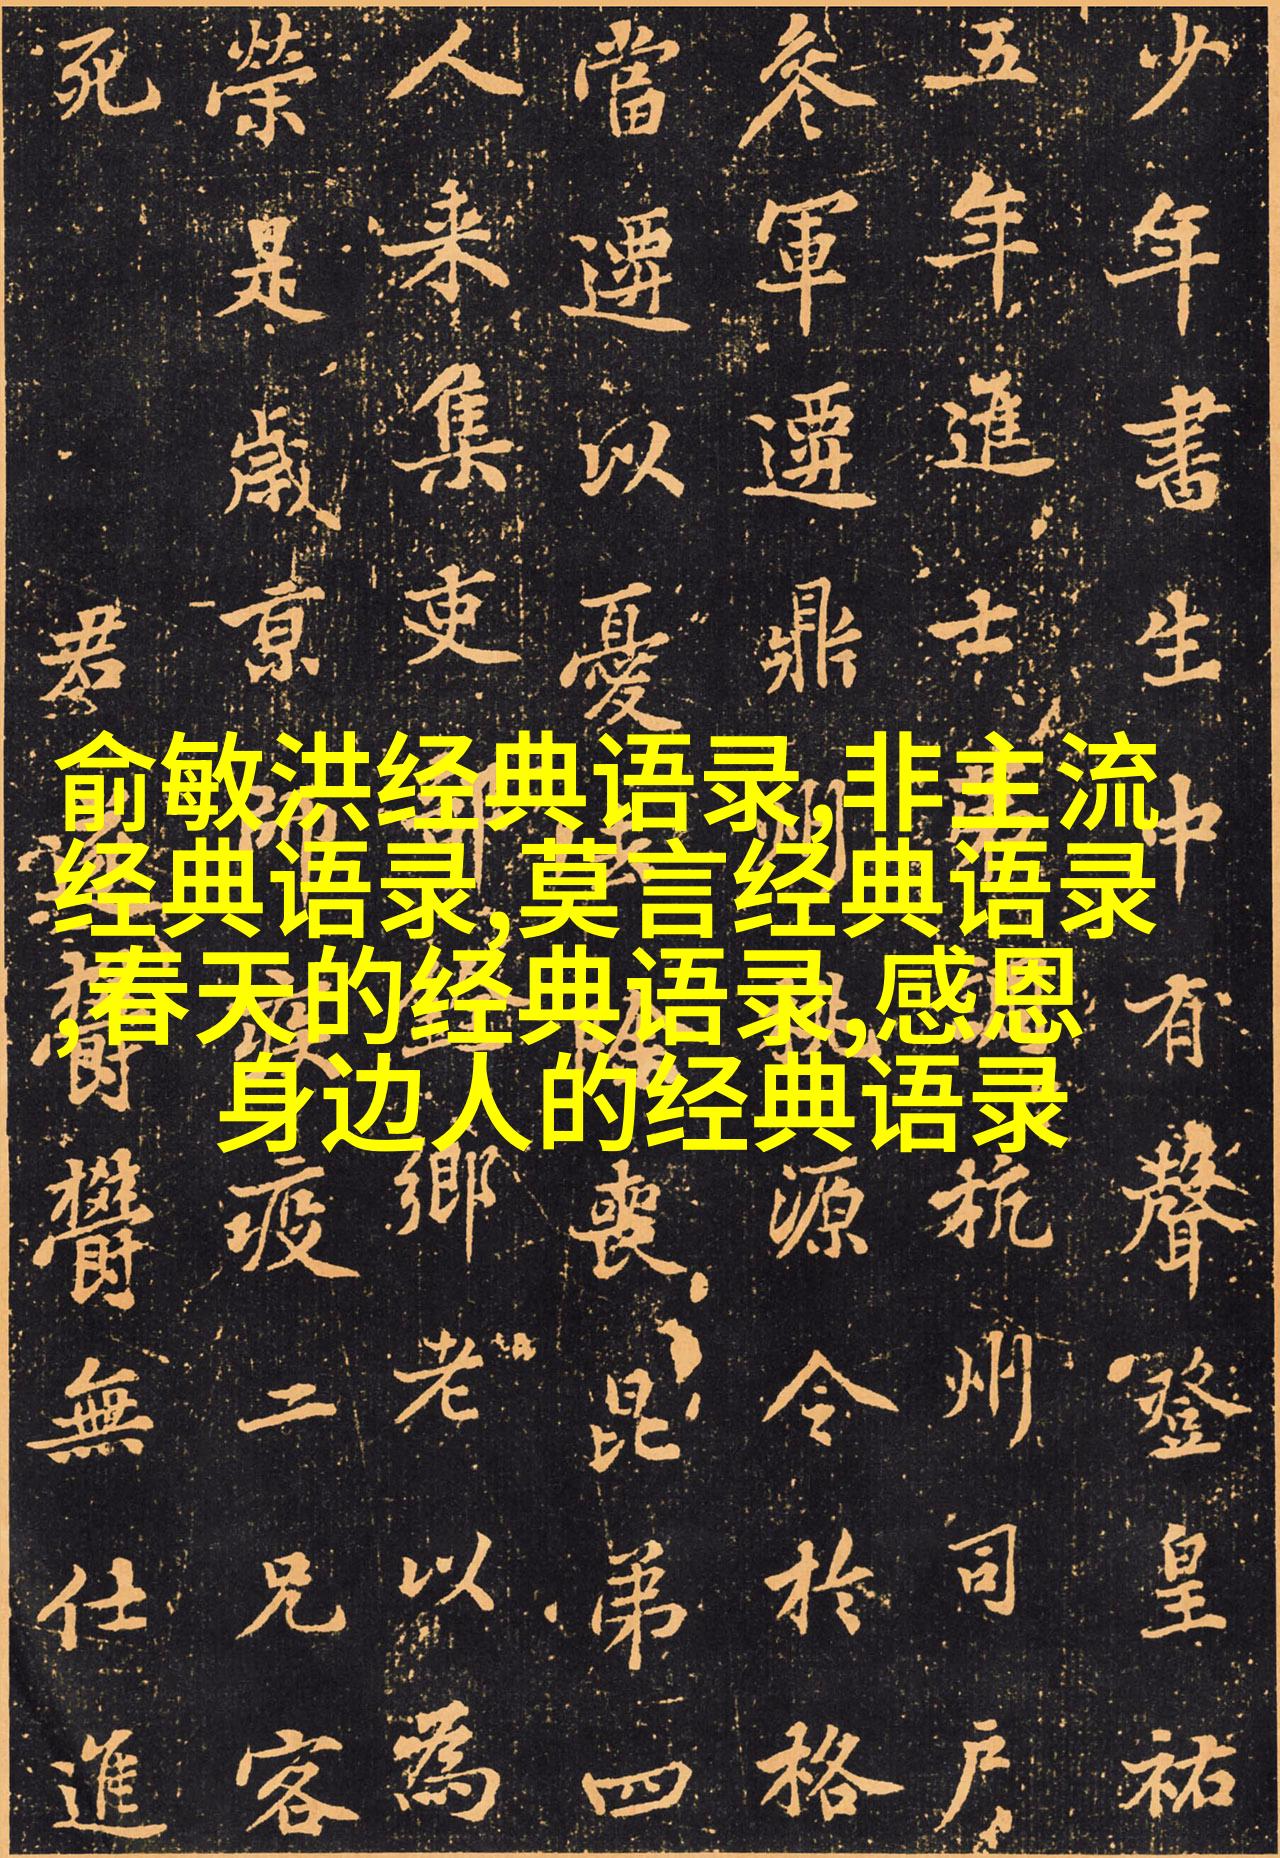 俞敏洪经典语录,非主流
经典语录,莫言经典语录
,春天的经典语录,感恩
身边人的经典语录
少年書生中有聲登皇祐
五年進士杭州司户
叅軍遷鼎州桃源令於格
當遷以憂去除喪昆弟四
人来集吏部鄉老以為
榮是歲京師疫二兄客
死 君欝欝無仕進